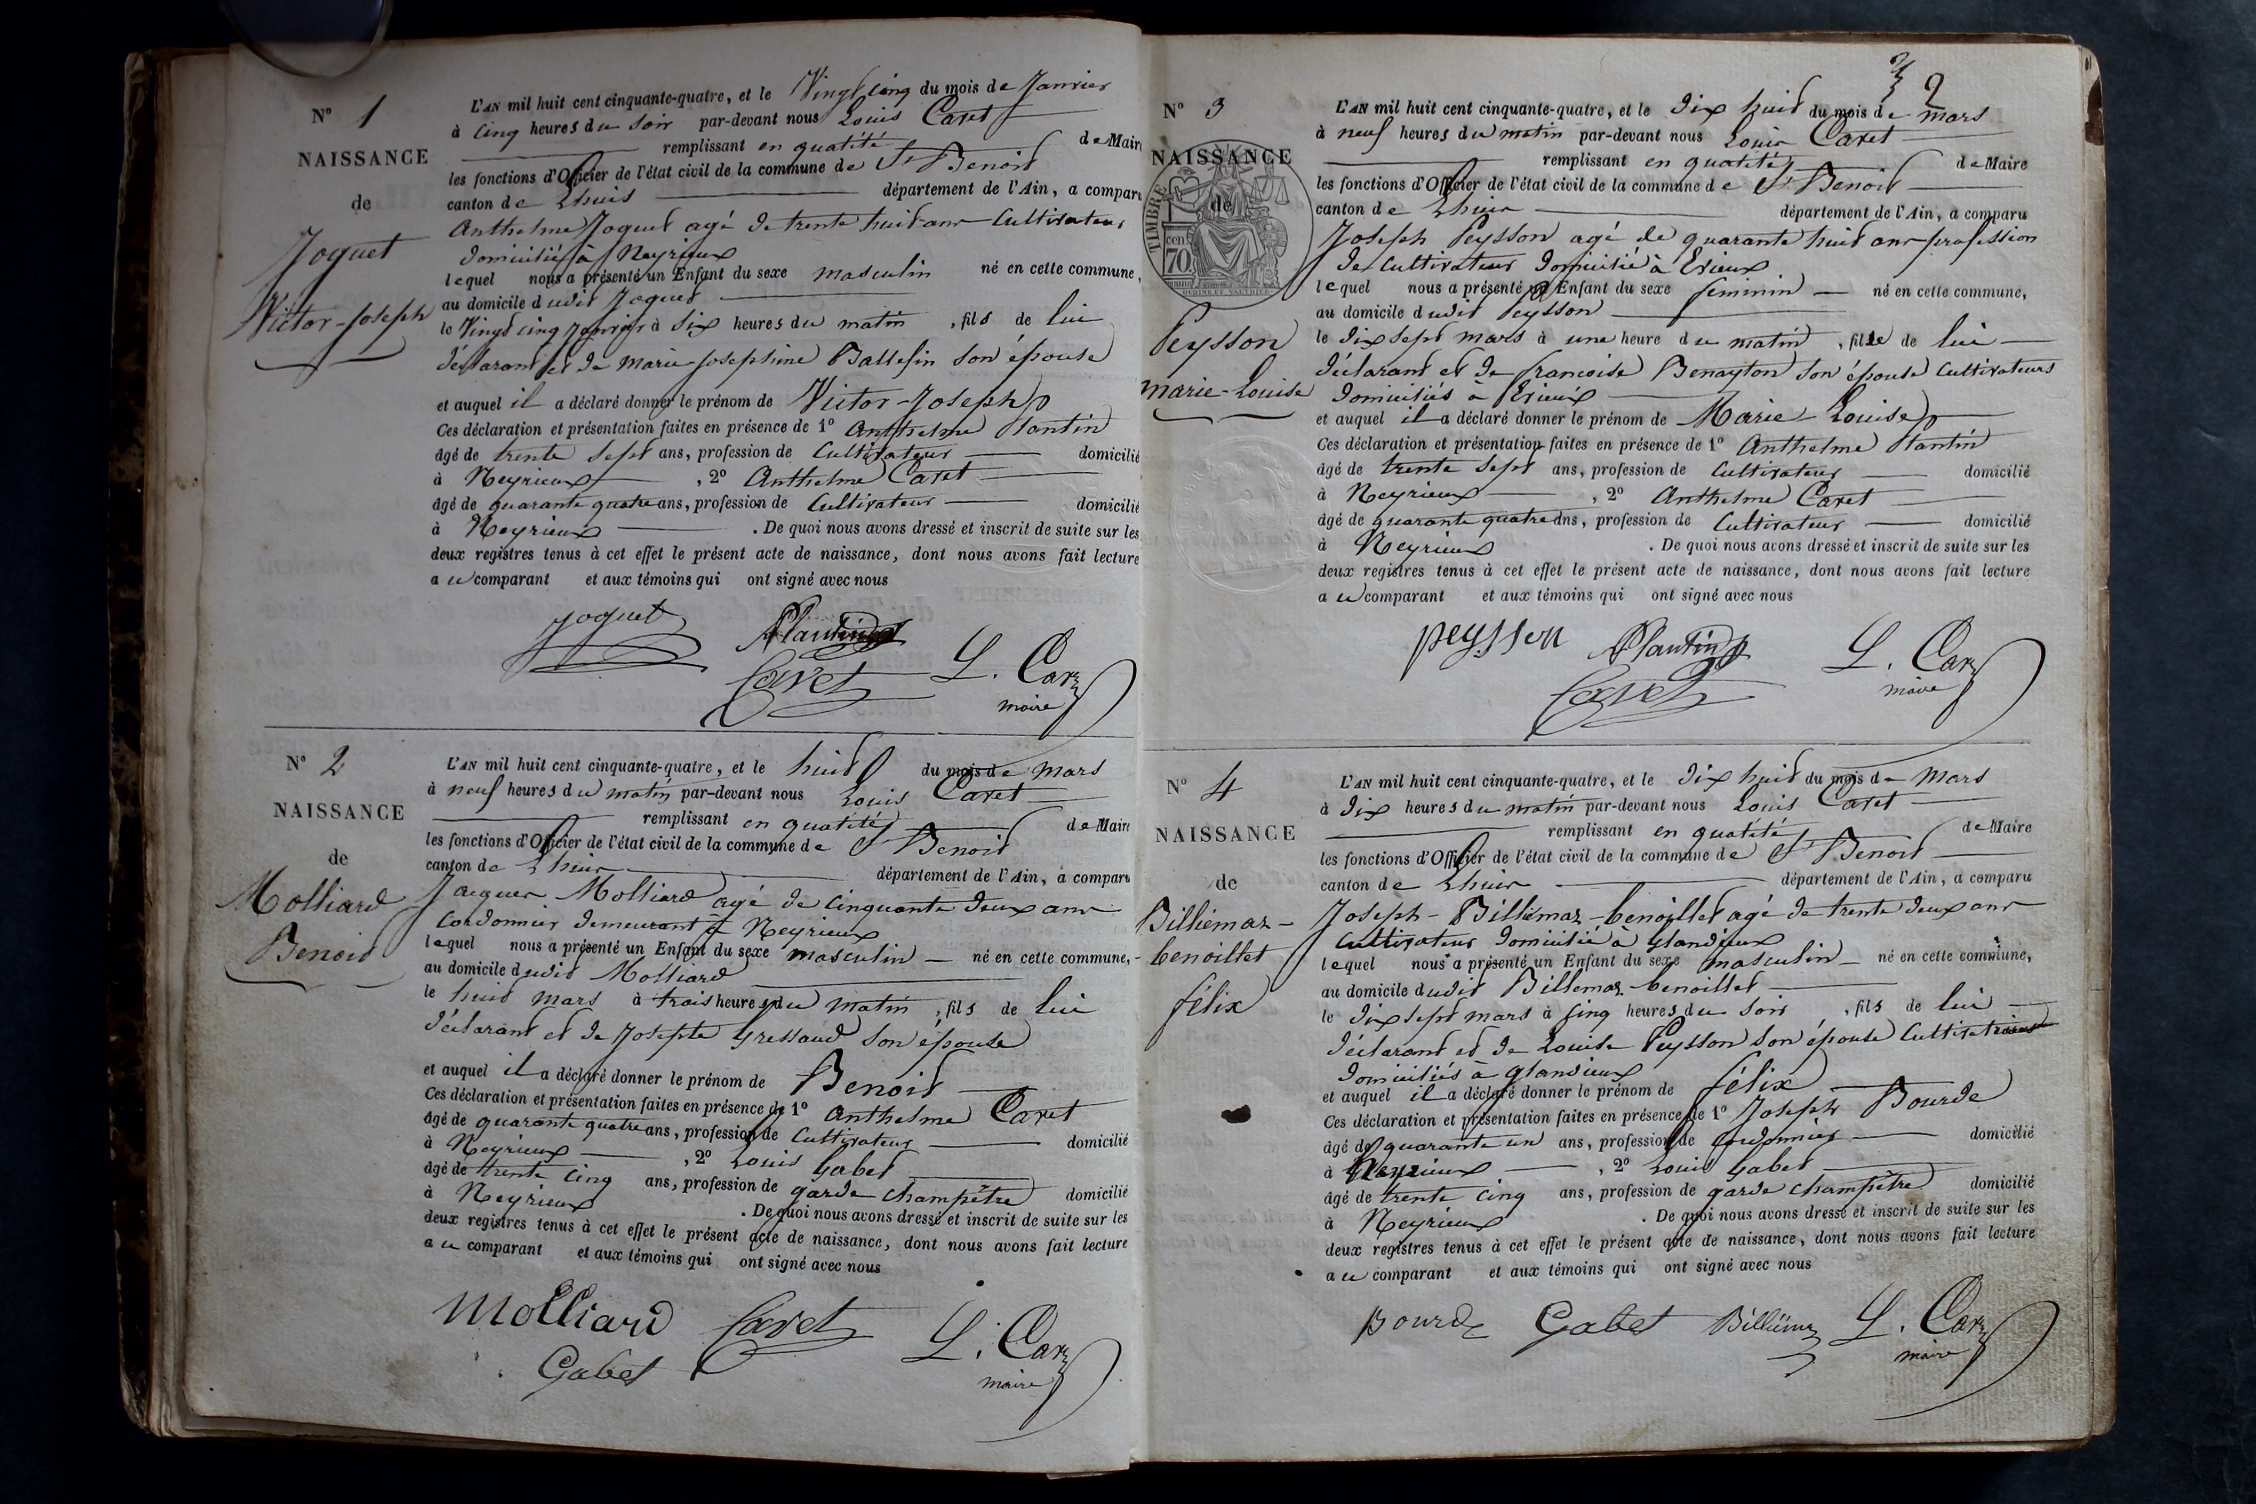 N° 1
NAISSANCE
de
Joguet
Victor-Joseph
L'AN mil huit cent cinquante-quatre, et le Vingt cinq du mois de Janvier
à cinq heures du soir par-devant nous Louis Caret
remplissant en qualité de Maire
les fonctions d'Officier de l'état civil de la commune de St Benoit
canton de Lhuis département de l'Ain, a comparu
Anthelme Joguet agé de trente huit ans Cultivateur
domicilié à Neyrieux
lequel nous a présenté un Enfant du sexe masculin né en cette commune,
au domicile dudit Joguet
le Vingt cinq Janvier à six heures du matin, fils de lui
déclarant et de Marie-Josephine Ballefin son épouse
et auquel il a déclaré donner le prénom de Victor-Joseph
Ces déclaration et présentation faites en présence de 1° Anthelme Plantin
âgé de trente sept ans, profession de Cultivateur domicilié
à Neyrieux, 2° Anthelme Caret
âgé de quarante quatre ans, profession de Cultivateur domicilié
à Neyrieux. De quoi nous avons dressé et inscrit de suite sur les
deux registres tenus à cet effet le présent acte de naissance, dont nous avons fait lecture
au comparant et aux témoins qui ont signé avec nous
Joguet Plantin
Caret L. Caret
maire
N° 2
NAISSANCE
de
Molliard
Benoit
L'AN mil huit cent cinquante-quatre, et le huit du mois de mars
à neuf heures du matin par-devant nous Louis Caret
remplissant en qualité de Maire
les fonctions d'Officier de l'état civil de la commune de St Benoit
canton de Lhuis département de l'Ain, a comparu
Jacques Molliard agé de cinquante deux ans
Cordonnier demeurant à Neyrieux
lequel nous a présenté un Enfant du sexe masculin né en cette commune,
au domicile dudit Molliard
le huit mars à trois heures du matin, fils de lui
déclarant et de Josephte Gressaud son épouse
et auquel il a déclaré donner le prénom de Benoit
Ces déclaration et présentation faites en présence de 1° Anthelme Caret
âgé de quarante quatre ans, profession de Cultivateur domicilié
à Neyrieux, 2° Louis Gabet
âgé de trente cinq ans, profession de garde champêtre domicilié
à Neyrieux. De quoi nous avons dressé et inscrit de suite sur les
deux registres tenus à cet effet le présent acte de naissance, dont nous avons fait lecture
au comparant et aux témoins qui ont signé avec nous
Molliard Caret L. Caret
Gabet maire
2
N° 3
NAISSANCE
de
TIMBRE
70
Peysson
Marie-Louise
L'AN mil huit cent cinquante-quatre, et le dix huit du mois de mars
à neuf heures du matin par-devant nous Louis Caret
remplissant en qualité de Maire
les fonctions d'Officier de l'état civil de la commune de St Benoit
canton de Lhuis département de l'Ain, a comparu
Joseph Peysson agé de quarante huit ans profession
de Cultivateur domicilié à Erieux
lequel nous a présenté un Enfant du sexe féminin né en cette commune,
au domicile dudit Peysson
le dix sept mars à une heure du matin, fille de lui
déclarant et de françoise Benayton son épouse Cultivateurs
domiciliés à Erieux
et auquel il a déclaré donner le prénom de Marie-Louise
Ces déclaration et présentation faites en présence de 1° Anthelme Plantin
âgé de trente sept ans, profession de Cultivateur domicilié
à Neyrieux, 2° Anthelme Caret
âgé de quarante quatre ans, profession de Cultivateur domicilié
à Neyrieux. De quoi nous avons dressé et inscrit de suite sur les
deux registres tenus à cet effet le présent acte de naissance, dont nous avons fait lecture
au comparant et aux témoins qui ont signé avec nous
peysson Plantin L. Caret
Caret maire
N° 4
NAISSANCE
de
Billiémaz-
benoillet
félix
L'AN mil huit cent cinquante-quatre, et le dix huit du mois de Mars
à dix heures du matin par-devant nous Louis Caret
remplissant en qualité de Maire
les fonctions d'Officier de l'état civil de la commune de St Benoit
canton de Lhuis département de l'Ain, a comparu
Joseph-Billiémaz-benoillet agé de trente deux ans
Cultivateur domicilié à glandieux
lequel nous a présenté un Enfant du sexe masculin né en cette commune,
au domicile dudit Billemaz-benoillet
le dix sept mars à cinq heures du soir, fils de lui
déclarant et de Louise Peysson son épouse
domiciliés à glandieux
et auquel il a déclaré donner le prénom de félix
Ces déclaration et présentation faites en présence de 1° Joseph Bourde
âgé de quarante un ans, profession de cordonnier domicilié
à Neyrieux, 2° Louis Gabet
âgé de trente cinq ans, profession de garde champêtre domicilié
à Neyrieux. De quoi nous avons dressé et inscrit de suite sur les
deux registres tenus à cet effet le présent acte de naissance, dont nous avons fait lecture
au comparant et aux témoins qui ont signé avec nous
Bourde Gabet Billiémaz L. Caret
maire